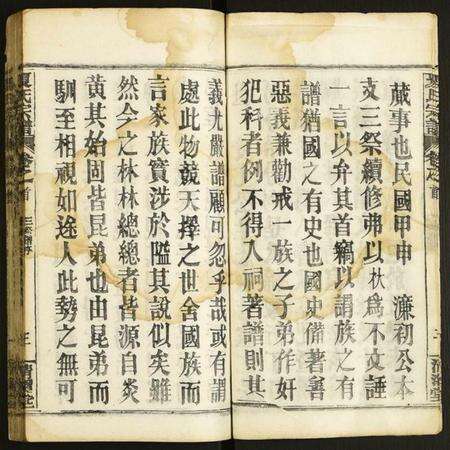 蕆事也民國甲申 濂初公本
支三祭續修弗以杕為不文諈
一言以弁其首竊以謂族之有
譜猶國之有史也國史備著善
惡義兼勸戒一族之子弟作奸
犯科者例不得入祠著譜則其
義尤嚴譜顧可忽乎哉或有謂
處此物競天擇之世舍國族而
言家族實涉於隘其說似矣雖
然今之林林總總者皆源自炎
黃其始固皆昆弟也由昆弟而
馴至相視如途人此勢之無可